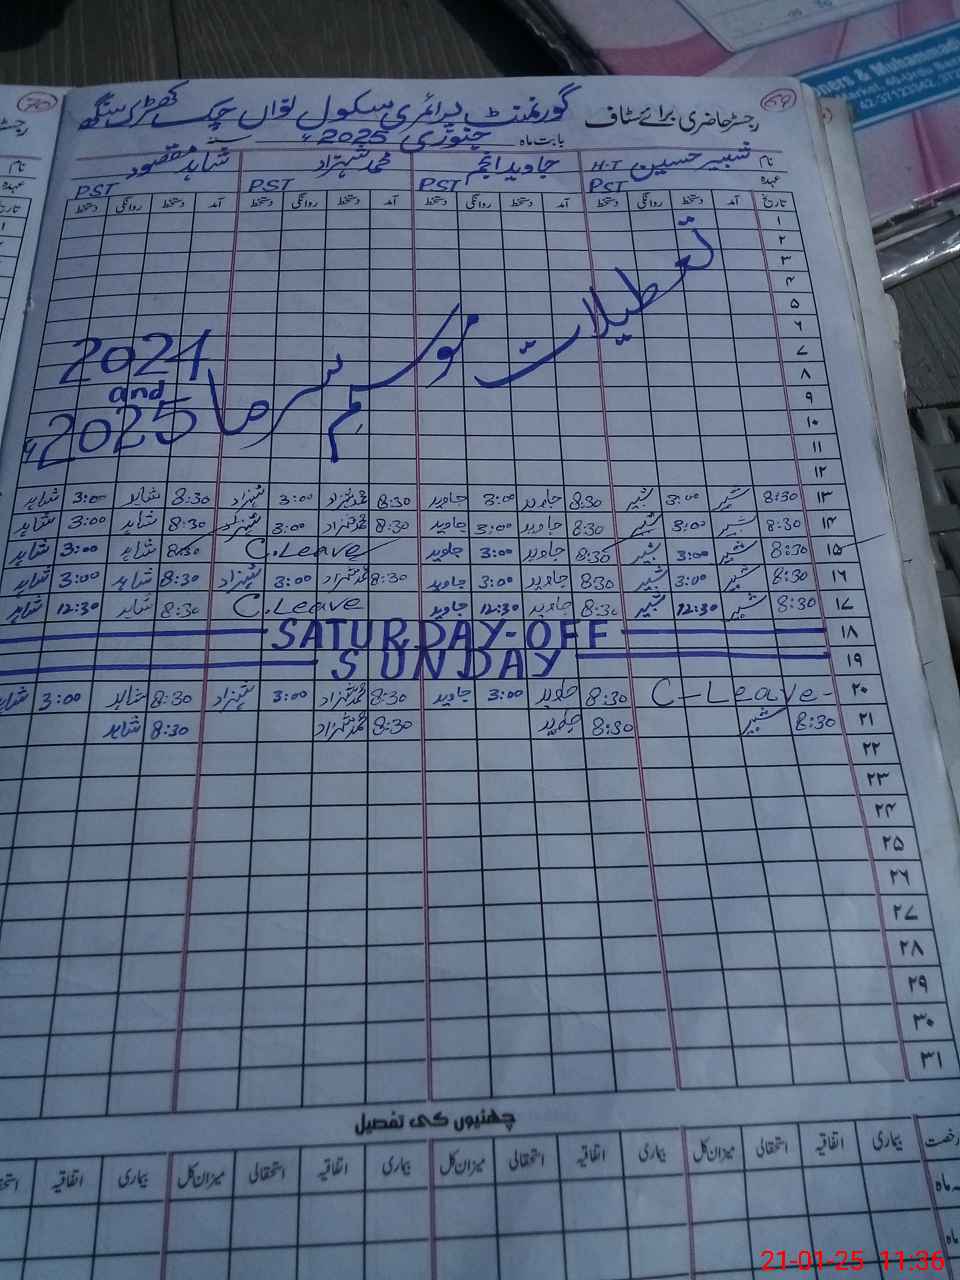 رجسٹر حاضری برائے سٹاف گورنمنٹ پرائمری سکول لواں چک کھڑک سنگھ
59
بابت ماہ جنوری 2025ء
نام شبیر حسین H-T جاوید انجم محمد شہزاد شاہد مقصود
عہدہ PST PST PST PST
تاریخ آمد دستخط روانگی دستخط آمد دستخط روانگی دستخط آمد دستخط روانگی دستخط آمد دستخط روانگی دستخط
۱
۲
۳
۴
۵
۶
۷
۸
۹
۱۰
۱۱
۱۲
تعطیلات موسم سرما 2024
and
2025ء
۱۳ 8:30 شبیر 3:00 شبیر 8:30 جاوید 3:00 جاوید 8:30 محمد شہزاد 3:00 شہزاد 8:30 شاہد 3:00 شاہد
۱۴ 8:30 شبیر 3:00 شبیر 8:30 جاوید 3:00 جاوید 8:30 محمد شہزاد 3:00 شہزاد 8:30 شاہد 3:00 شاہد
۱۵ 8:30 شبیر 3:00 شبیر 8:30 جاوید 3:00 جاوید C.Leave 8:30 شاہد 3:00 شاہد
۱۶ 8:30 شبیر 3:00 شبیر 8:30 جاوید 3:00 جاوید 8:30 محمد شہزاد 3:00 شہزاد 8:30 شاہد 3:00 شاہد
۱۷ 8:30 شبیر 12:30 شبیر 8:30 جاوید 12:30 جاوید C.Leave 8:30 شاہد 12:30 شاہد
۱۸ SATURDAY-OFF
۱۹ SUNDAY
۲۰ C-Leave- 8:30 جاوید 3:00 جاوید 8:30 محمد شہزاد 3:00 شہزاد 8:30 شاہد 3:00 شاہد
۲۱ 8:30 شبیر 8:30 جاوید 8:30 محمد شہزاد 8:30 شاہد
۲۲
۲۳
۲۴
۲۵
۲۶
۲۷
۲۸
۲۹
۳۰
۳۱
چھٹیوں کی تفصیل
رخصت بیماری اتفاقیہ استحقاقی میزان کل بیماری اتفاقیہ استحقاقی میزان کل بیماری اتفاقیہ استحقاقی میزان کل بیماری اتفاقیہ
ماہ
ماہ
21-01-25 11:36